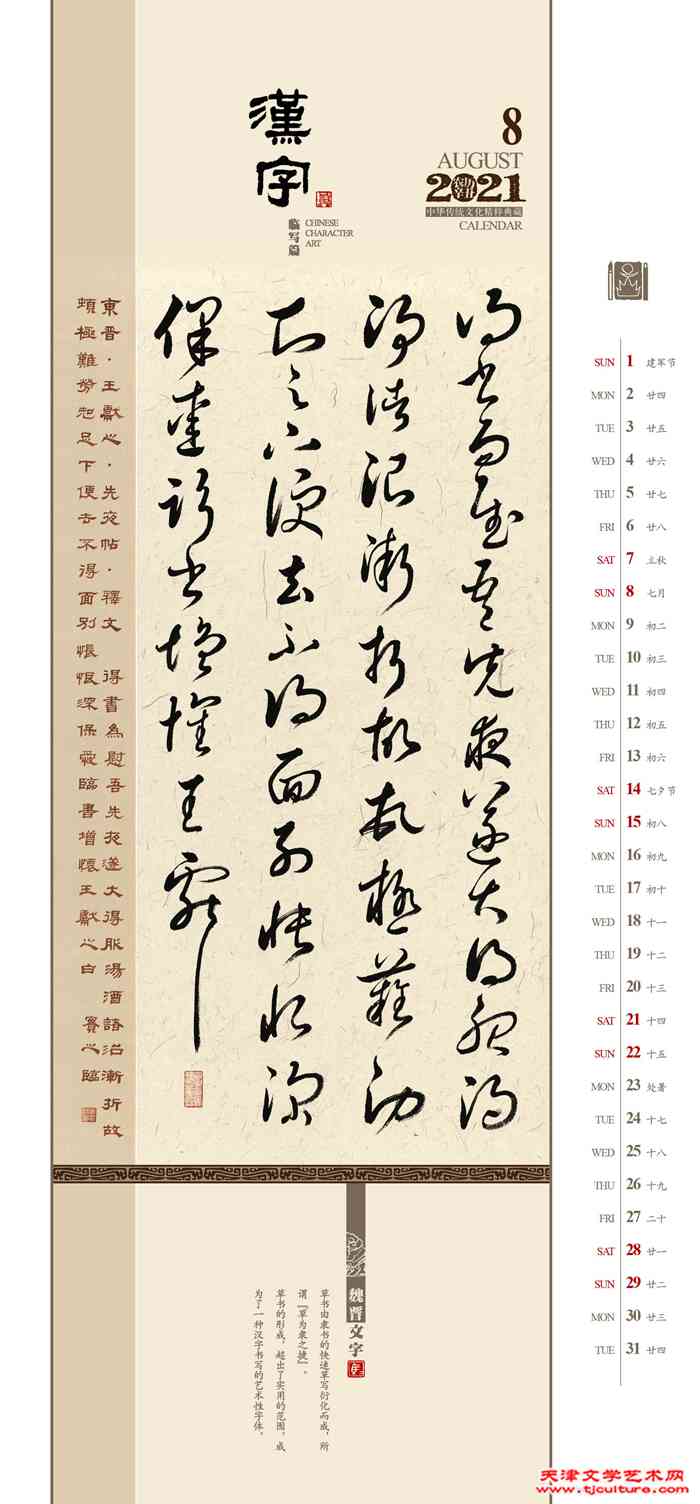 漢字
臨写篇
CHINESE
CHARACTER
ART
8
AUGUST
2021
中华传统文化精粹典藏
CALENDAR
得書為慰吾先夜遂大得服湯
酒諸治漸折故頓極難勞
知足下便去不得面別悵恨深
保愛臨書增懷王獻之
東晋·王獻之·先夜帖·釋文 得書為慰吾先夜遂大得服湯酒諸治漸折故
頓極難勞知足下便去不得面別悵恨深保愛臨書增懷王獻之白 之臨
SUN 1 建军节
MON 2 廿四
TUE 3 廿五
WED 4 廿六
THU 5 廿七
FRI 6 廿八
SAT 7 立秋
SUN 8 七月
MON 9 初二
TUE 10 初三
WED 11 初四
THU 12 初五
FRI 13 初六
SAT 14 七夕节
SUN 15 初八
MON 16 初九
TUE 17 初十
WED 18 十一
THU 19 十二
FRI 20 十三
SAT 21 十四
SUN 22 十五
MON 23 处暑
TUE 24 十七
WED 25 十八
THU 26 十九
FRI 27 二十
SAT 28 廿一
SUN 29 廿二
MON 30 廿三
TUE 31 廿四
魏晋文字
草书由隶书的快速草写衍化而成，所
谓『草为隶之捷』。
草书的形成，超出了实用的范围，成
为了一种汉字书写的艺术性字体。
天津文学艺术网
www.tjculture.com